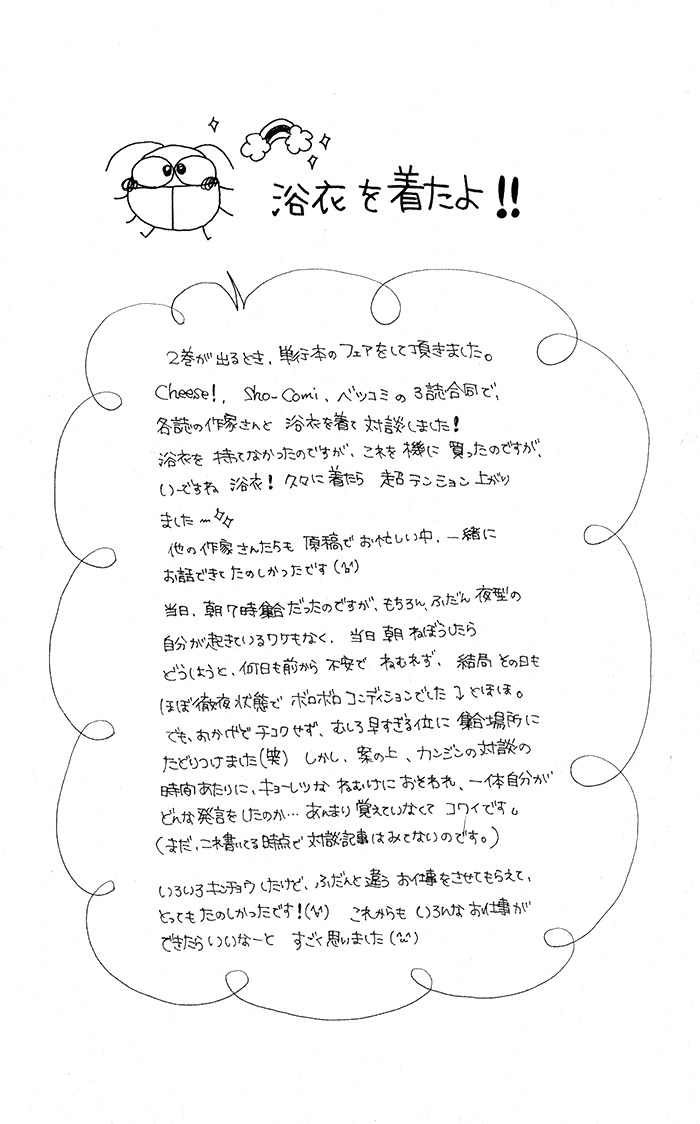 浴衣を着たよ!!
2巻が出るとき、単行本のフェアをして頂きました。
Cheese!、Sho-Comi、ベツコミの3誌合同で、
各誌の作家さんと 浴衣を着て 対談しました!
浴衣を 持てなかったのですが、これを機に 買ったのですが、
いーですね 浴衣! 久々に着たら 超テンション上がり
ました〜
他の作家さんたちも 原稿でお忙しい中、一緒に
お話できてたのしかったです(^^)
当日、朝7時集合だったのですが、もちろん、ふだん夜型の
自分が起きているワケもなく、当日朝ねぼうしたら
どうしようと、何日も前から 不安で ねむれず、結局その日も
ほぼ徹夜状態で ボロボロコンディションでした とほほ。
でも、おかげでチコクせず、むしろ早すぎる位に 集合場所に
たどりつけました(笑) しかし、案の上、カンジンの対談の
時間あたりに、キョーレツな ねむけにおそわれ、一体自分が
どんな発言をしたのか… あんまり覚えていなくて コワイです。
(まだ、コレ書いてる時点で 対談記事はみてないのです。)
いろいろキンチョウしたけど、ふだんと違う お仕事をさせてもらえて、
とってもたのしかったです!(^^) これからも いろんなお仕事が
できたらいいなーと すごく思いました(^^)